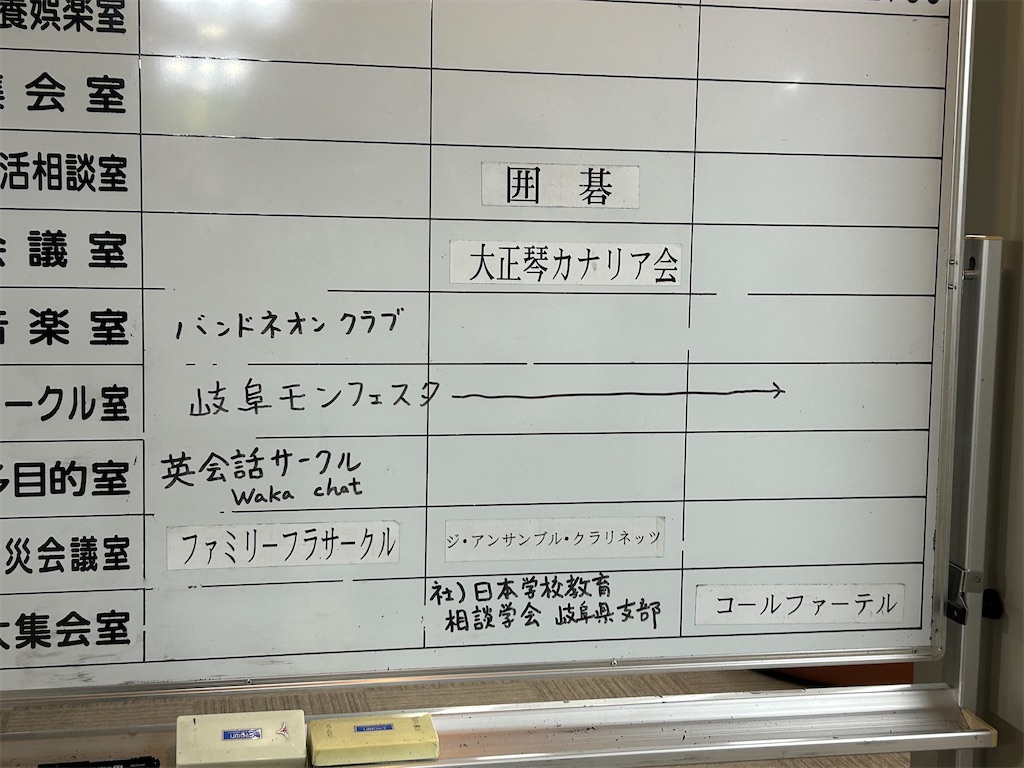 養娯楽室
集会室
活相談室
囲 碁
会議室
大正琴カナリア会
音楽室
バンドネオンクラブ
ークル室
岐阜モンフェスタ
多目的室
英会話サークル
Waka chat
災会議室
ファミリーフラサークル
ジ・アンサンブル・クラリネッツ
大集会室
社)日本学校教育
相談学会 岐阜県支部
コールファーテル